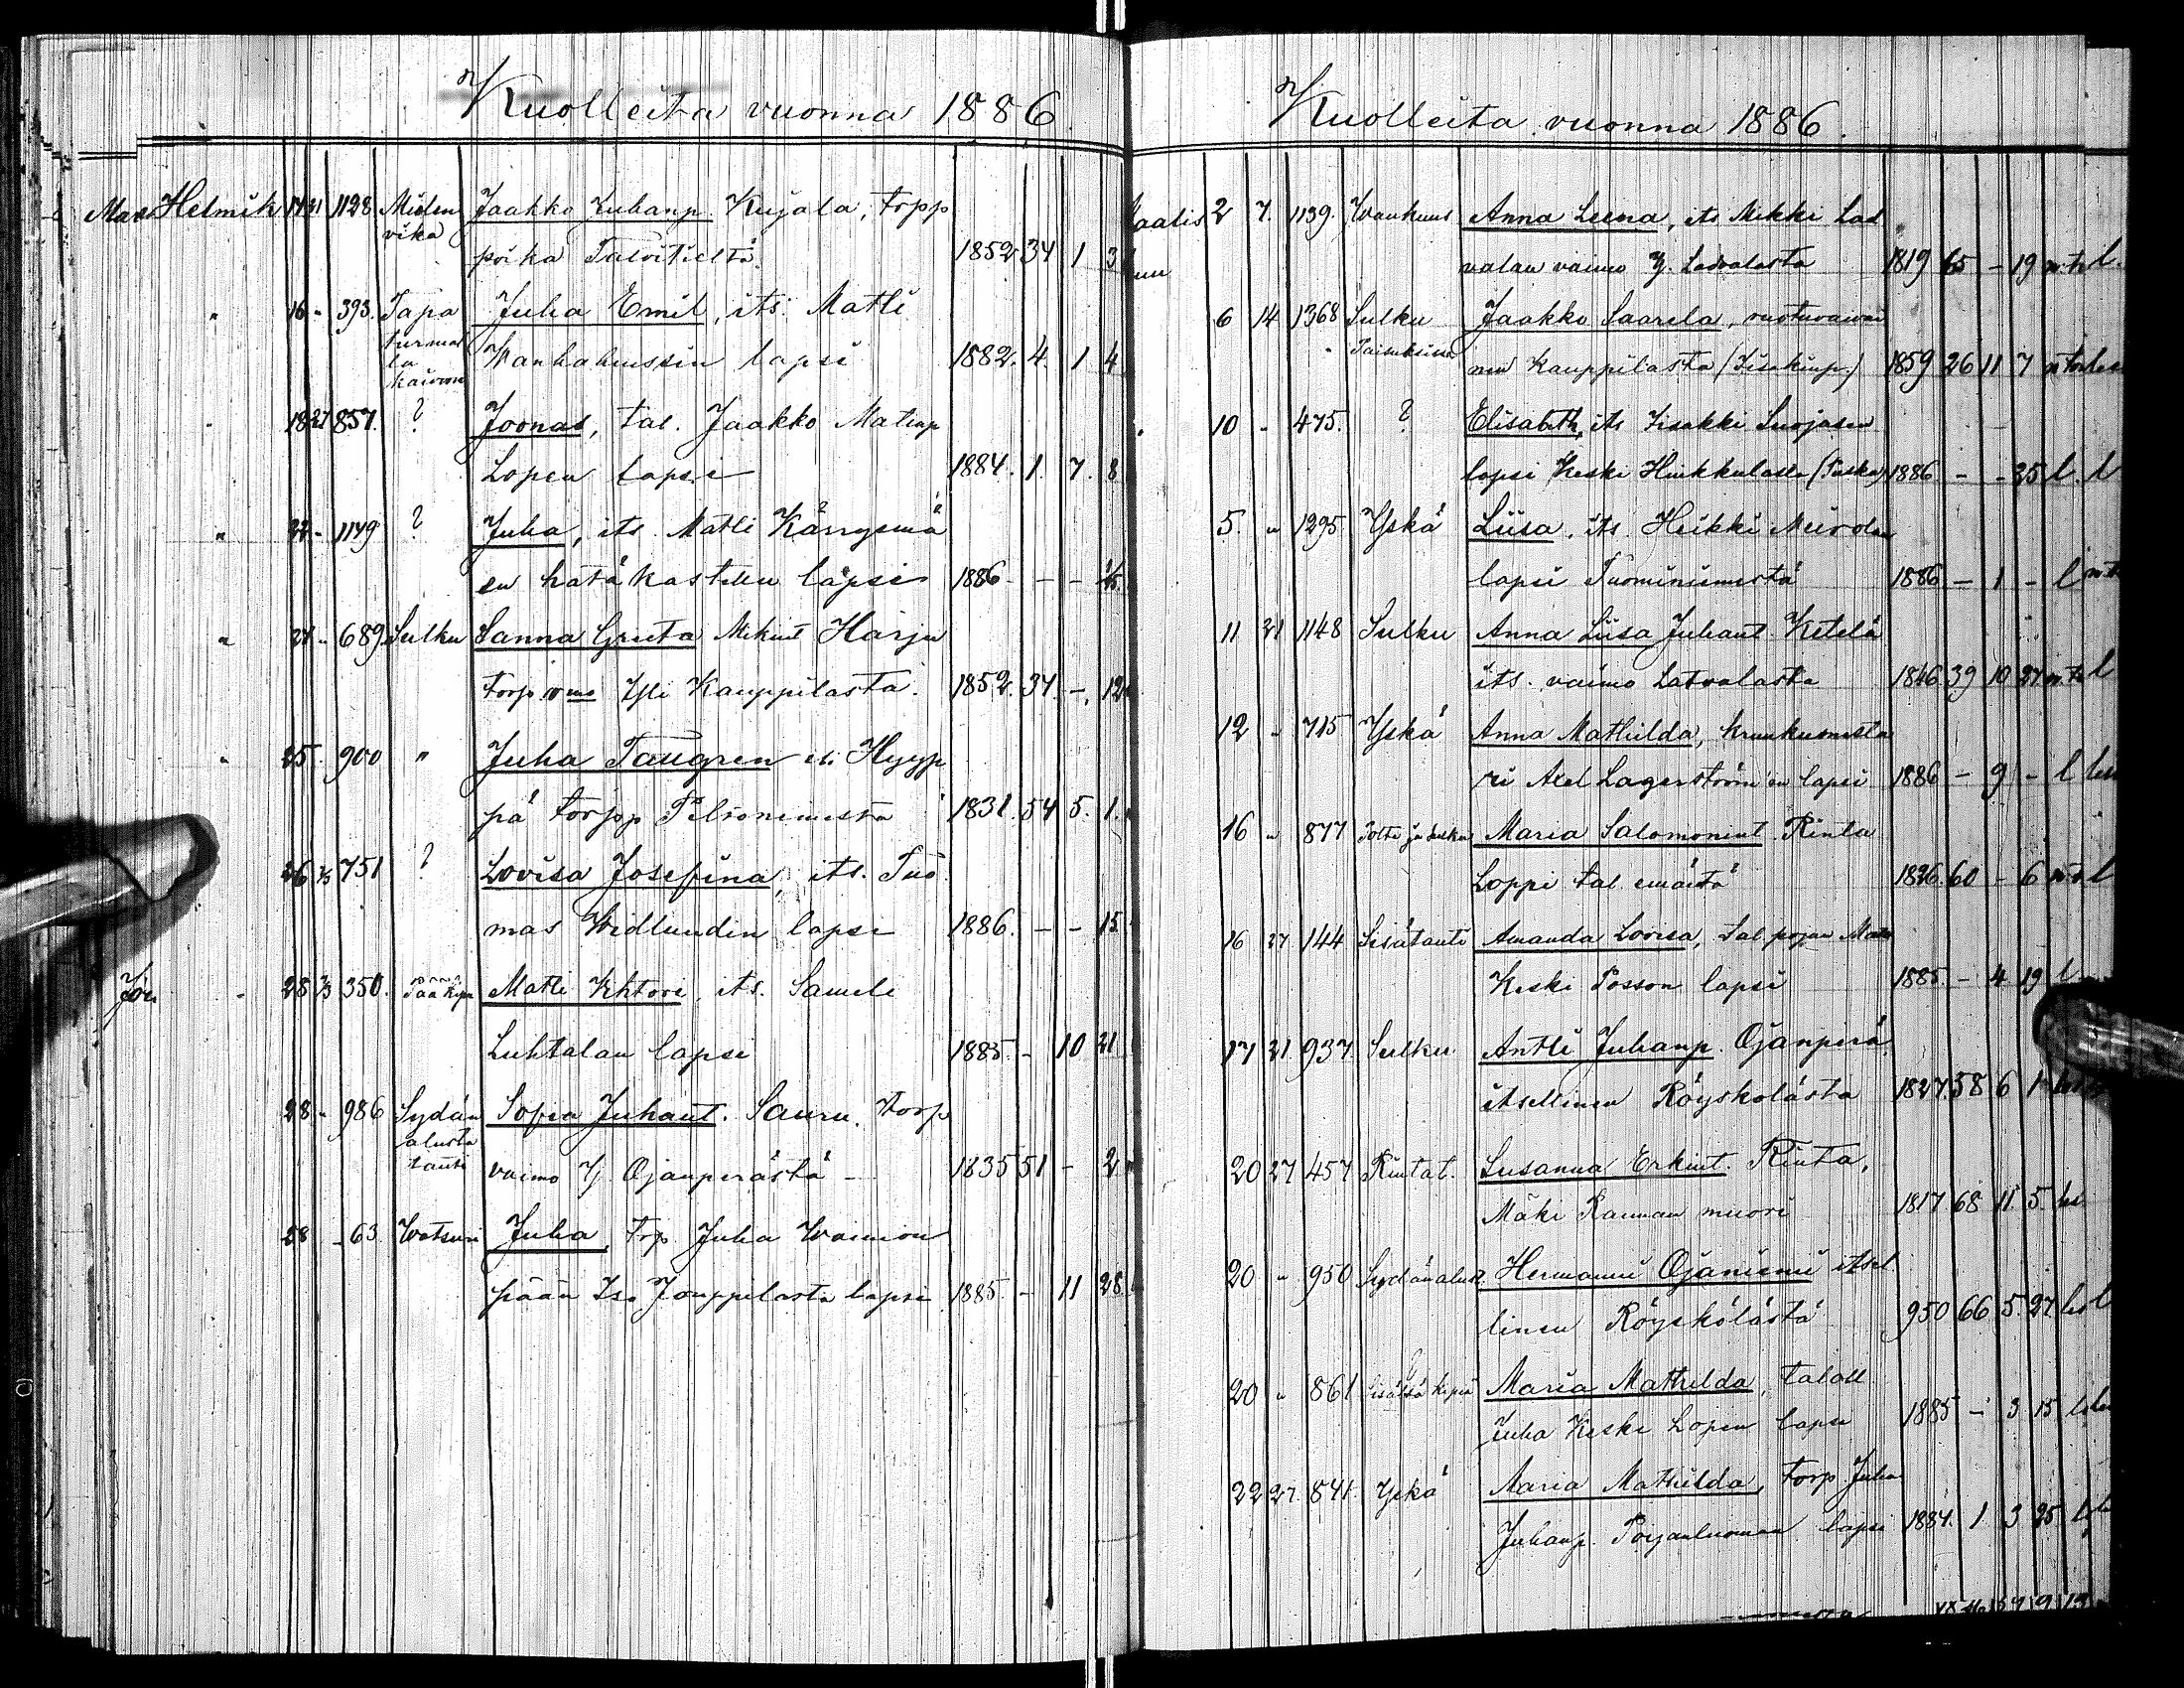 Kuolleita vuonna 1886
Helmik 14 21 1128 Jaakko Juhanp. Kujala, torpp
poika Talvitieltä 1852 34 1 3
" 16 - 393. Tapa Juha Emil, its. Matti
turmal
la
kaivoon Wanhahuussin lapsi 1882. 4. 1 4
18 21 857. ? Joonas, tal. Jaakko Matinp
Lopen lapsi 1884. 1. 7. 8
" 22 - 1149 ? Juha, its. Matti Kärrysmä
en hätäkastettu lapsi 1886 - - -
" 24 - 689 Sulku Sanna Greeta Mikint Harju
torp. vmo Yli Kauppilasta. 1852. 34. -, 12
" 25. 900 " Juha Taugren
pä torpp Peltoniemestä 1831. 54 5. 1.
26 751 ? Lovisa Josefina, its. Tuo
mas Widlundin lapsi 1886. - - 15
28 350. Matti Ehtori, its. Sameli
Luhtalan lapsi 1885 - 10 21
28 - 986 Sydän Sofia Juhant. Sauru. torp
alusta
tauti vaimo Y. Ojanperästä - 1835 51 - 2
28 - 63. Watsuri Juha, trp. Juha Wainion
pään Iso Jouppilasta lapsi 1885. - 11 28.
Kuolleita vuonna 1886.
Maalis 2 7. 1139. Wanhuus Anna Leena, its Mikki Lad
kuu valan vaimo Y. Ladvalasta 1819 65 - 19
6 14 1368 Sulku Jaakko Saarela, ruotuvaivai
nen Kauppilasta (Iisakinp.) 1859 26 11 7
10 - 475. ? Elisabeth, its Iisakki Luojasen
lapsi Keski Hinkkulasta 1886 - - 25 l. l
5. " 1295 Yskä Liisa, its. Heikki
lapsi Tuominiemestä 1886 - 1 - l
11 21 1148 Sulku Anna Liisa Juhant Ketelä
its. vaimo Latvalasta 1846 39 10 27 l
12 - 715 Yskä Anna Mathilda,
ri Axel Lagerström'in lapsi 1886 - 9 - l
16 " 877 Maria Salomonint Rinta
Loppi tal emäntä 1826. 60 - 6 l
16 27 144 Sisätauti Amanda Lovisa, tal pojan
Keski Posson lapsi 1885. - 4 19 l
17 21. 937 Sulku Antti Juhanp. Ojanperä
itsellinen Röyskolästä 1827. 58 6 1
20 27 457 Rintat. Susanna Erkint. Rinta,
Mäki Rauman muori 1817 68 11 5.
20 " 950 Sydänalust. Hermanni Ojaniemi itsel
linen Röyskölästä 950 66 5. 27
20 " 861 Maria Mathilda, taloll
Juha Keski Lopen lapsi 1885 - 3 15
22 27. 841. Yskä Maria Mathilda, torp. Juha
Juhanp. Pojanluoman lapsi 1884. 1 3 25